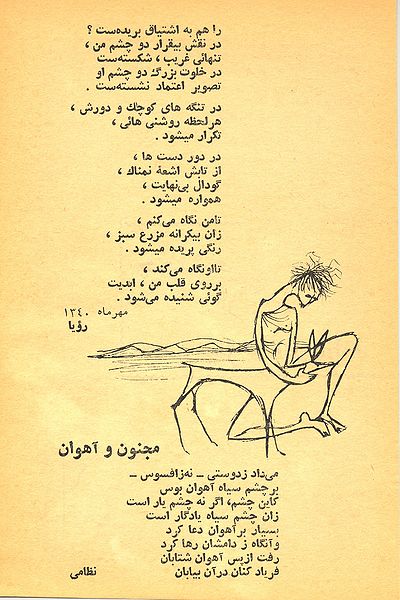 را هم به اشتیاق بریده‌ست ؟
در نقش بیقرار دو چشم من ،
تنهائی غریب ، شکسته‌ست
در خلوت بزرگ دو چشم او
تصویر اعتماد نشسته‌ست .
در تنگه های کوچك و دورش ،
هرلحظه روشنی هائی ،
تکرار میشود .
در دور دست ها ،
از تابش اشعهٔ نمناك ،
گودال بی‌نهایت ،
همواره میشود .
تامن نگاه می‌کنم ،
زان بیکرانه مزرع سبز ،
رنگی پریده میشود .
تااونگاه می‌کند ،
برروی قلب من ، ابدیت
گوئی شنیده می‌شود .
مهرماه ۱۳۴۰
رؤیا
مجنون و آهوان
می‌داد زدوستی ــ نه‌زافسوس ــ
برچشم سیاه آهوان بوس
کاین چشم، اگر نه چشم یار است
زان چشم سیاه یادگار است
بسیار برآهوان دعا کرد
وآنگاه ز دامشان رها کرد
رفت ازپس آهوان شتابان
فریاد کنان درآن بیابان
نظامی